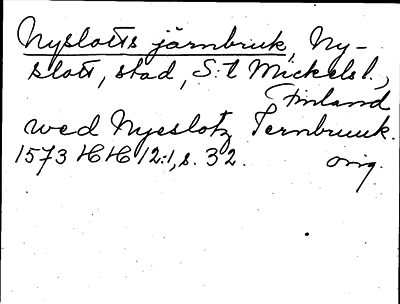 Nyslotts järnbruk, Ny-
slott, stad, S:t Mickels l.,
Finland
wed Nyeslotz Jernbruuk.
1573 HH 12:1, s. 32. orig.